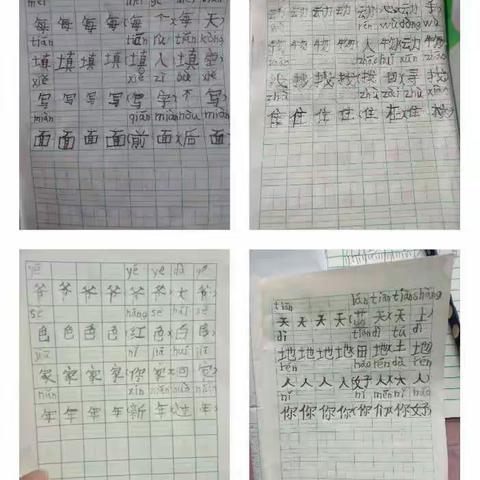 每 每 每 每 (每 个 x 每 天)
tián tián rù tiān kòng
填 填 填 填 (填 入 x 填 空)
xiě xiě zì bù xiě
写 写 写 写 (写 字 x 不 写)
miàn qián miàn hòu miàn
面 面 面 面 (前 面 x 后 面)
动 动 动 动
rén wù dòng wù
物 物 物 物 (人 物 x 动 物)
zhǎo zhǎo huí xún zhǎo
找 找 找 找 (找 回 x 寻 找)
zhù
住 住 住 住
yé yé ye dà yé
爷 爷 爷 爷 爷 爷 x 大 爷
sè hóng sè bái sè
色 色 色 色 红 色 x 白 色
jiā nǐ jiā huí jiā
家 家 家 家 你 家 x 回 家
nián xīn nián guò nián
年 年 年 年 新 年 x 过 年
tiān lán tiān tiān shàng
天 天 天 天 (蓝 天 x 天 上)
dì tián dì tǔ dì
地 地 地 地 (田 地 x 土 地)
rén hǎo rén dà rén
人 人 人 人 (好 人 x 大 人)
nǐ nǐ men nǐ hǎo
你 你 你 你 (你 们 x 你 好)